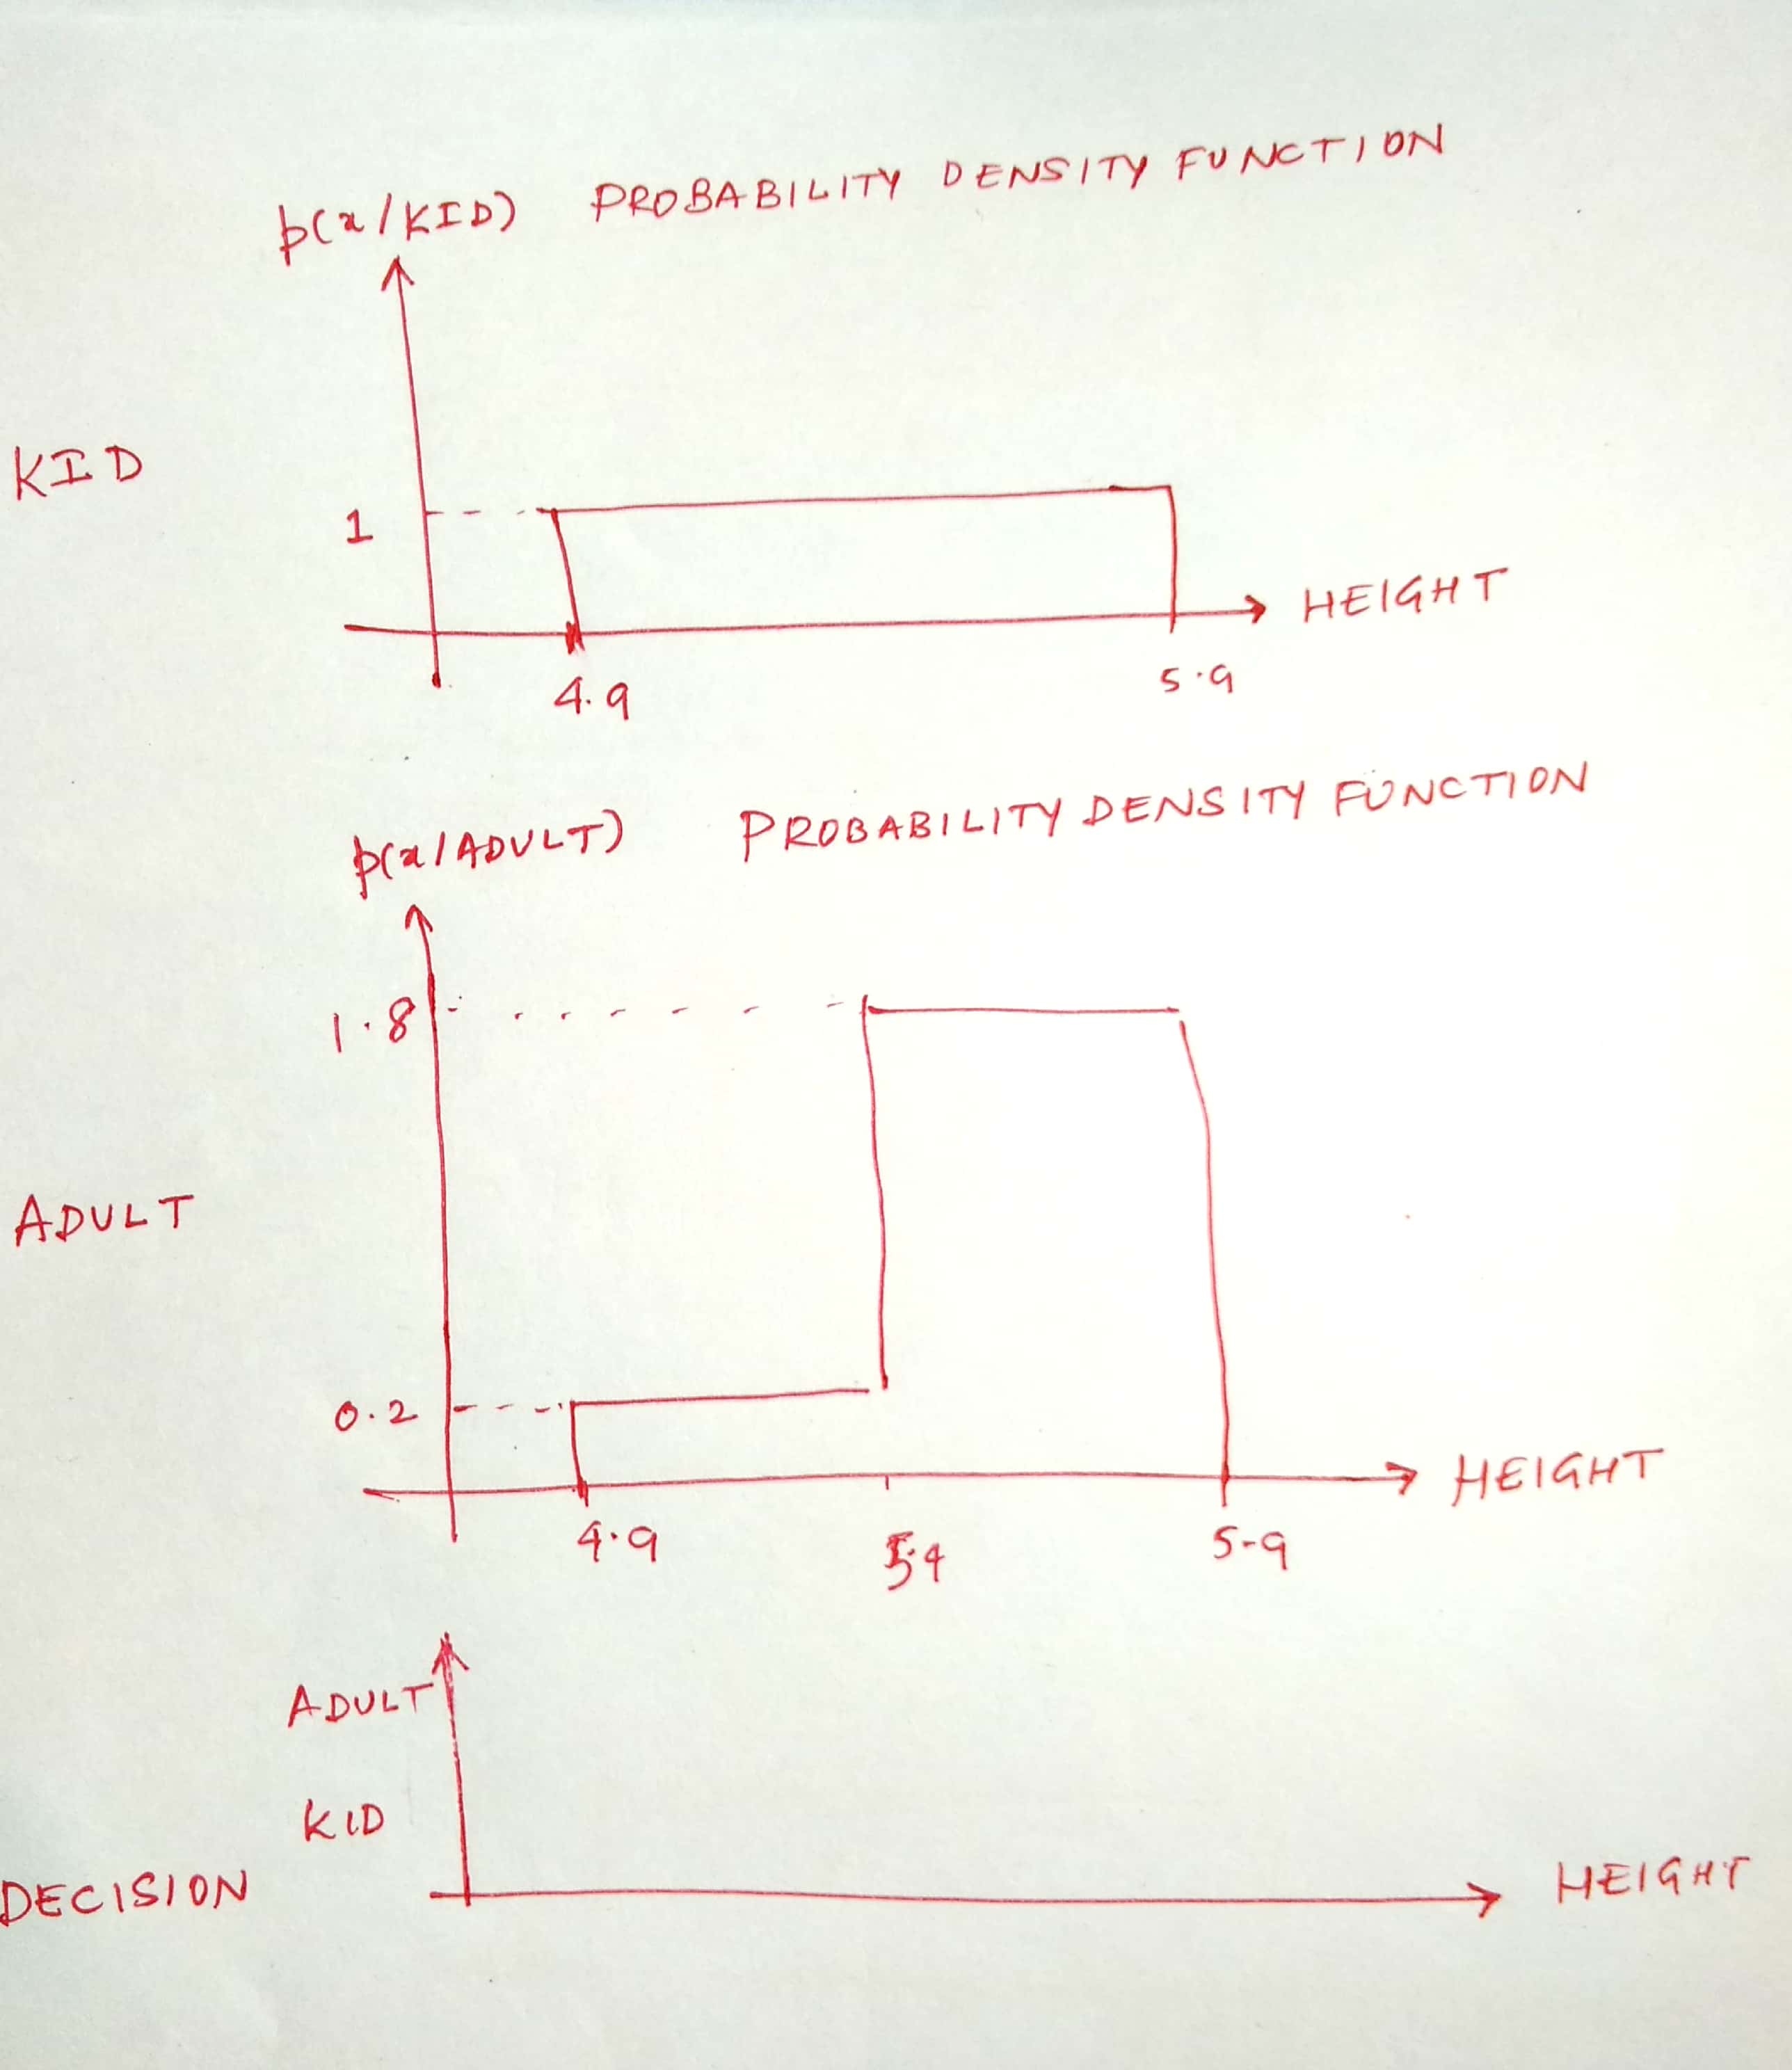 p(x/KID) PROBABILITY DENSITY FUNCTION
KID
1
HEIGHT
4.9 5.9
p(x/ADULT) PROBABILITY DENSITY FUNCTION
1.8
ADULT
0.2
HEIGHT
4.9 5.4 5-9
ADULT
KID
DECISION
HEIGHT